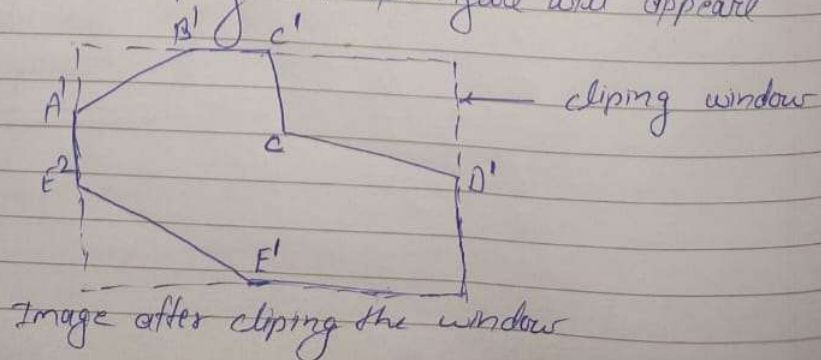 will appeare
B' C'
A'
cliping window
C
E2
D'
E'
Image after cliping the window